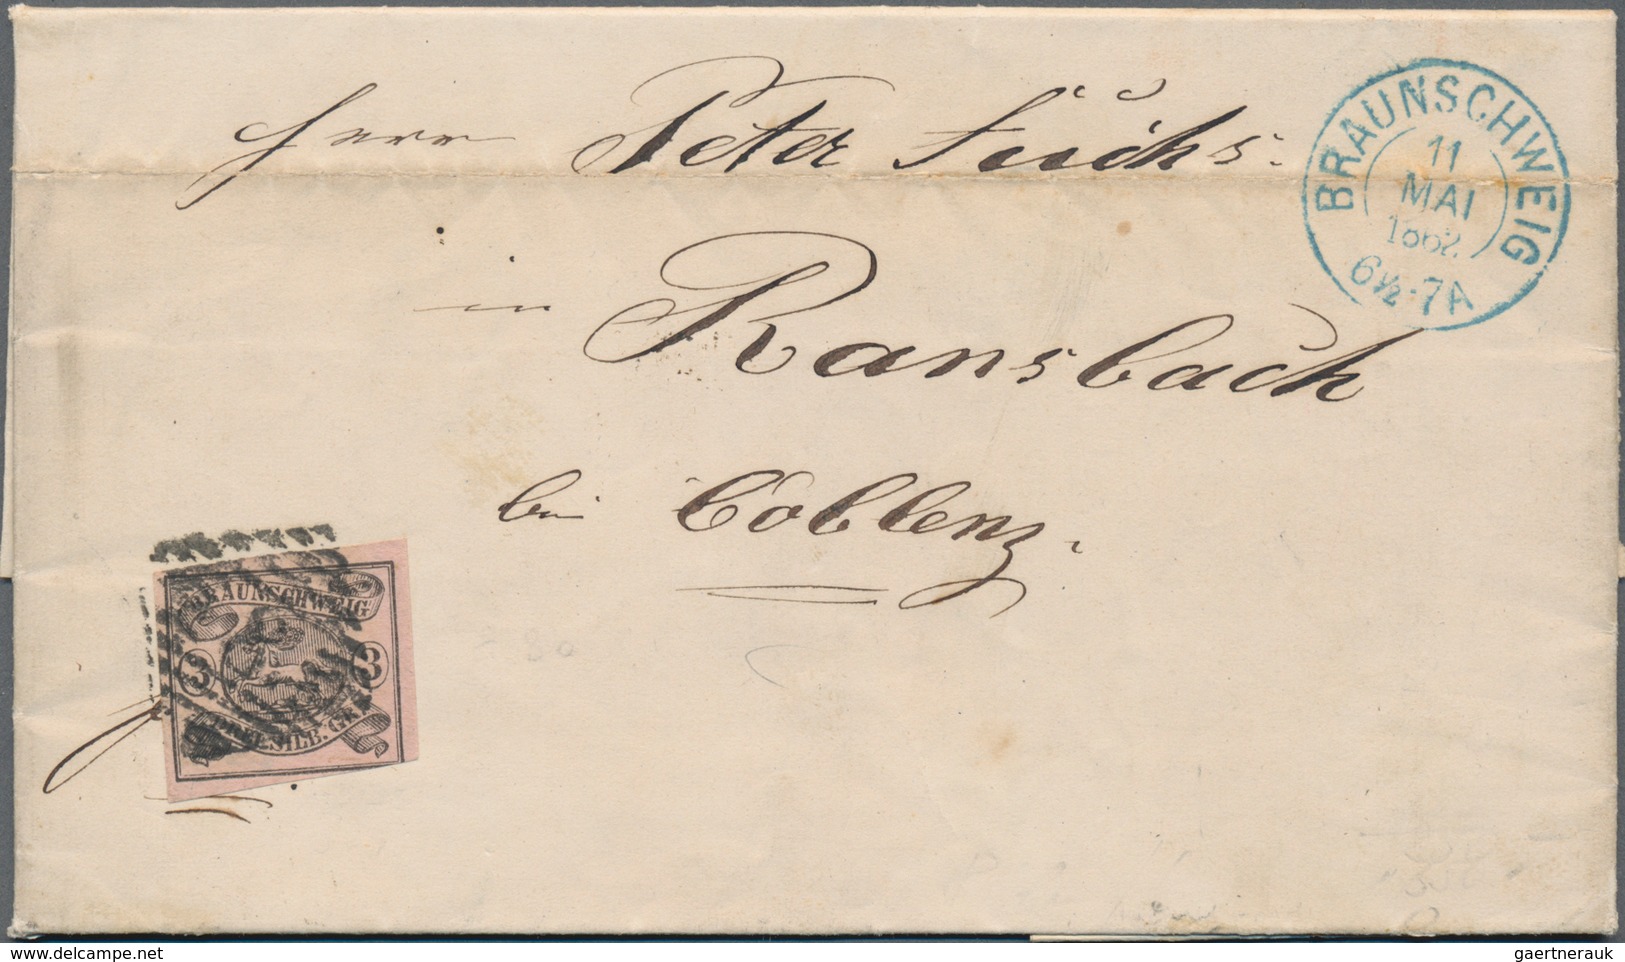 Herr Peter Fuchs.
in
Ransbach
bei Coblenz.
BRAUNSCHWEIG
11
MAI
1862
6½-7A
BRAUNSCHWEIG
3 3
DREI SILB. GR.
gaertnerauk